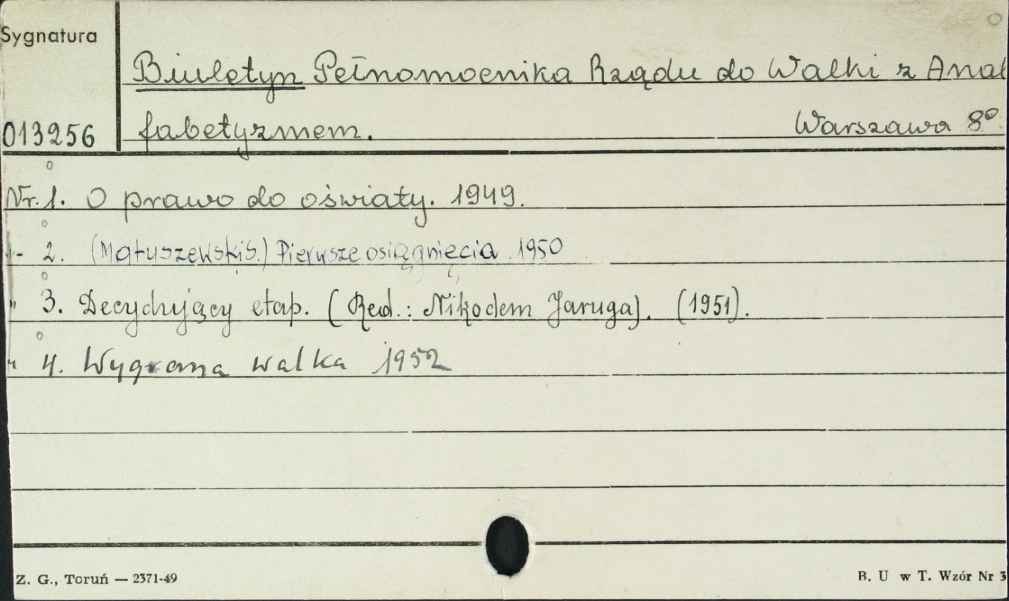 Sygnatura
Biuletyn Pełnomocnika Rządu do Walki z Anal
013256 fabetyzmem. Warszawa 8º
Nr. 1. O prawo do oświaty. 1949.
"- 2. (Matuszewski S.) Pierwsze osiągnięcia 1950
" 3. Decydujący etap. (Red.: Nikodem Jaruga). (1951).
" 4. Wygrana walka 1952
Z. G., Toruń — 2371-49 B. U w T. Wzór Nr 3